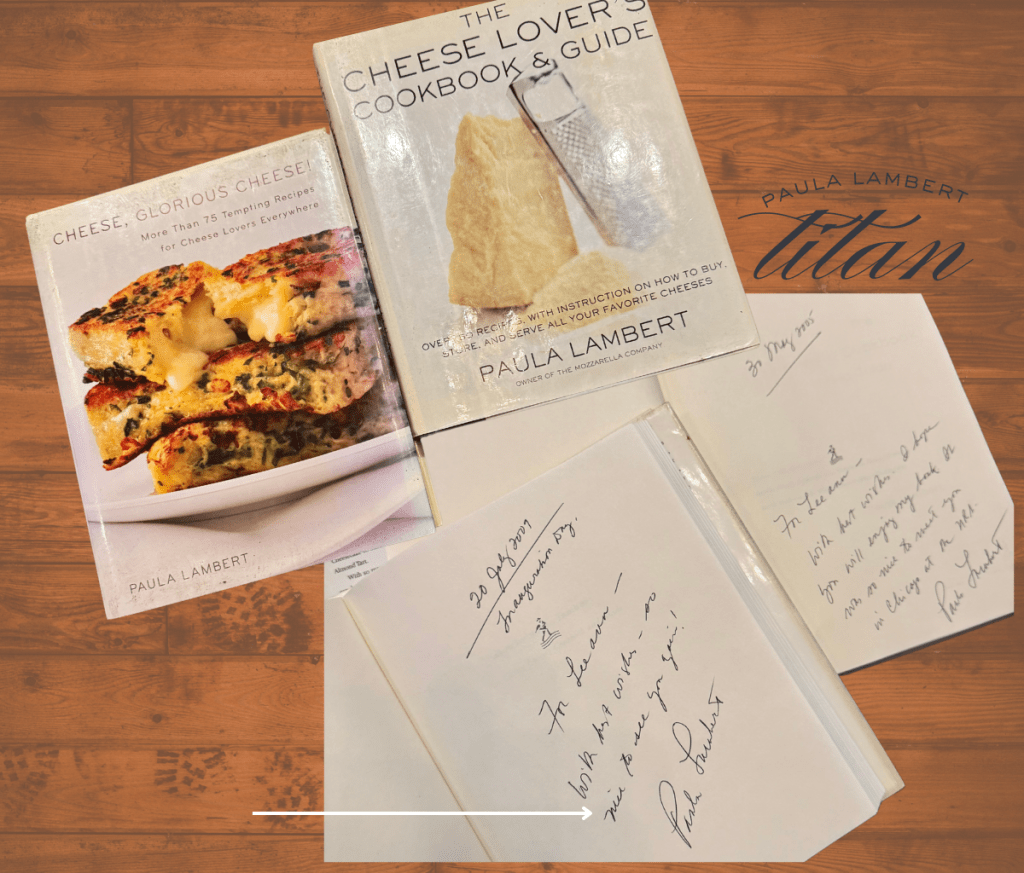 THE
CHEESE LOVER'S
COOKBOOK & GUIDE
OVER RECIPES, WITH INSTRUCTION ON HOW TO BUY,
STORE, AND SERVE ALL YOUR FAVORITE CHEESES
PAULA LAMBERT
OWNER OF THE MOZZARELLA COMPANY
CHEESE, GLORIOUS CHEESE!
More Than 75 Tempting Recipes
for Cheese Lovers Everywhere
PAULA LAMBERT
PAULA LAMBERT
titan
May 2005
For Leeann –
With best wishes. I hope
you will enjoy my book. It
was so nice to meet you
in Chicago at the NRA.
Paula Lambert
Almond Tart,
20 Jan/2009
Inauguration Day.
For Leeann –
With best wishes – so
nice to see you again!
Paula Lambert